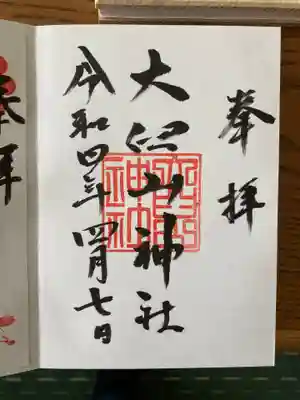 奉拝
大臼山神社
令和四年四月七日
奉拝